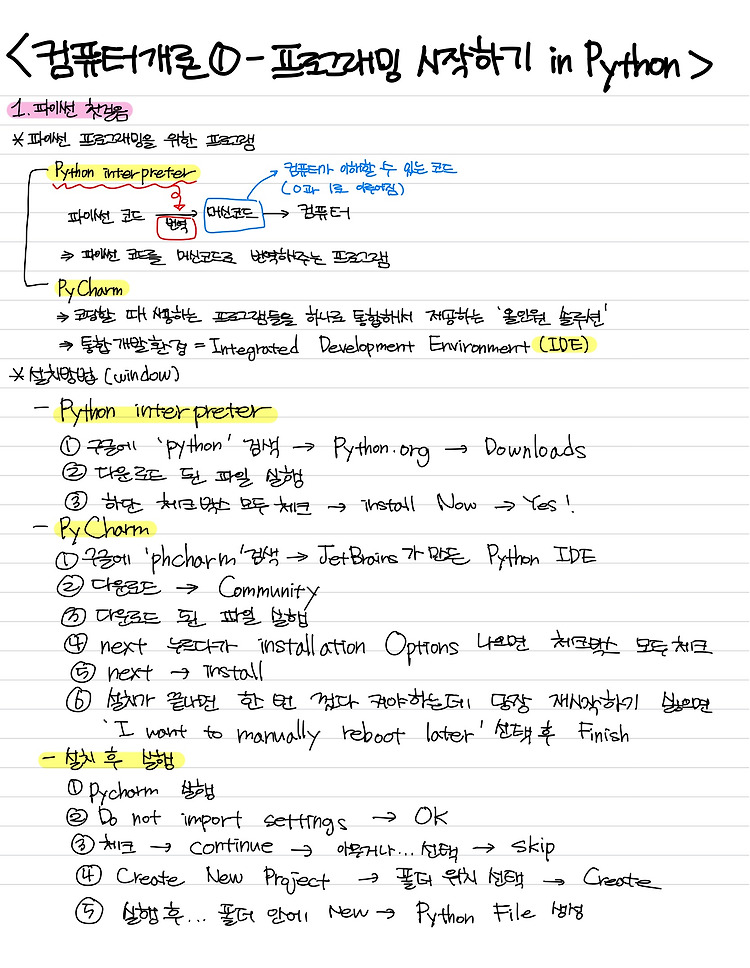 <컴퓨터개론① - 프로그래밍 시작하기 in Python>
1. 파이썬 첫걸음
* 파이썬 프로그래밍을 위한 프로그램
Python interpreter
컴퓨터가 이해할 수 있는 코드
(0과 1로 이루어짐)
파이썬 코드 → 머신코드 → 컴퓨터
번역
⇒ 파이썬 코드를 머신코드로 번역해주는 프로그램
PyCharm
⇒ 코딩할 때 사용하는 프로그램들을 하나로 통합해서 제공하는 '올인원 솔루션'
⇒ 통합개발환경 = Integrated Development Environment (IDE)
* 설치방법 (window)
- Python interpreter
① 구글에 'python' 검색 → Python.org → Downloads
② 다운로드 된 파일 실행
③ 하단 체크박스 모두 체크 → install Now → Yes!
- PyCharm
① 구글에 'phcharm' 검색 → JetBrains가 만든 Python IDE
② 다운로드 → Community
③ 다운로드 된 파일 실행
④ next 누르다가 installation Options 나오면 체크박스 모두체크
⑤ next → install
⑥ 설치가 끝나면 한 번 껐다 켜야하는데 당장 재시작하기 싫으면
'I want to manually reboot later' 선택 후 Finish
- 설치 후 실행
① Pycharm 실행
② Do not import settings → OK
③ 체크 → continue → 아무거나... 선택 → skip
④ Create New Project → 폴더 위치 선택 → Create
⑤ 실행 후... 폴더 안에 New → Python File 생성